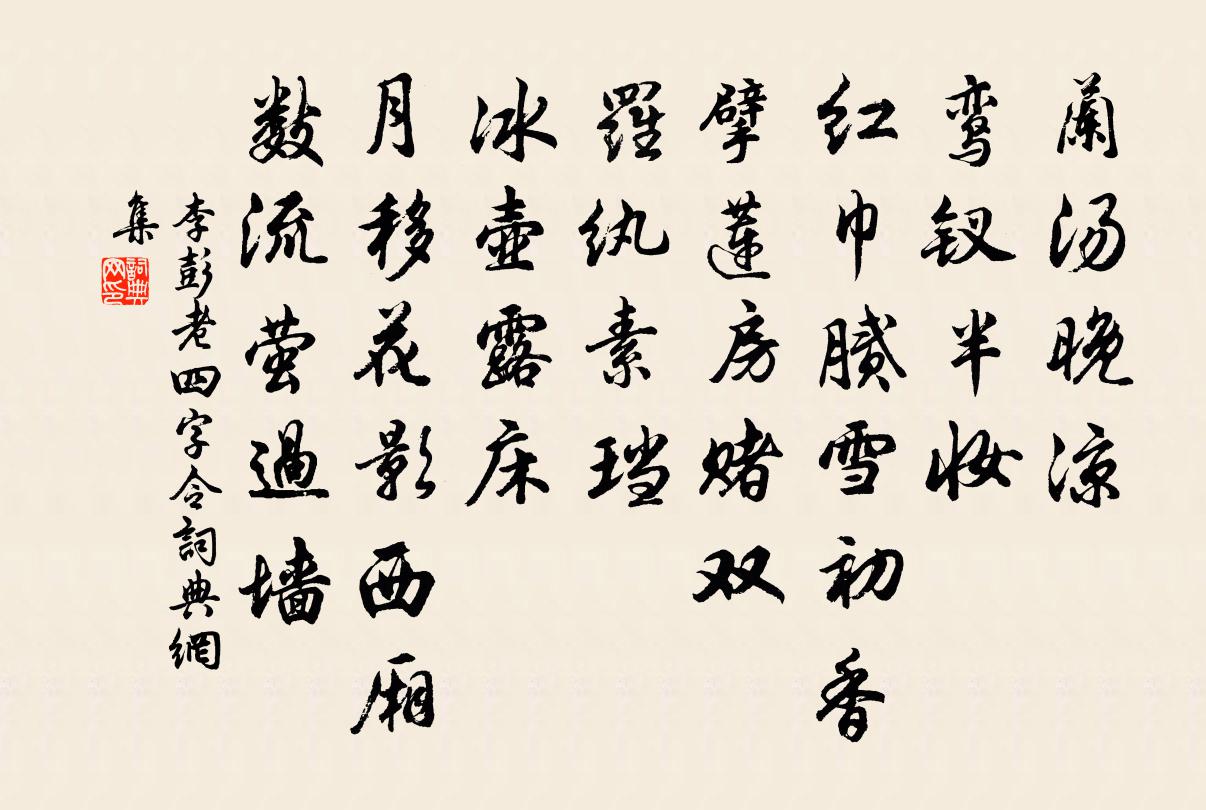 蘭汤晚凉
鸾钗半妆
红巾膩雪初香
擘蓮房赌双
羅纨素珰
冰壶露床
月移花影西厢
数流萤過墙
李彭老四字令詞典網
集
詞典
网印